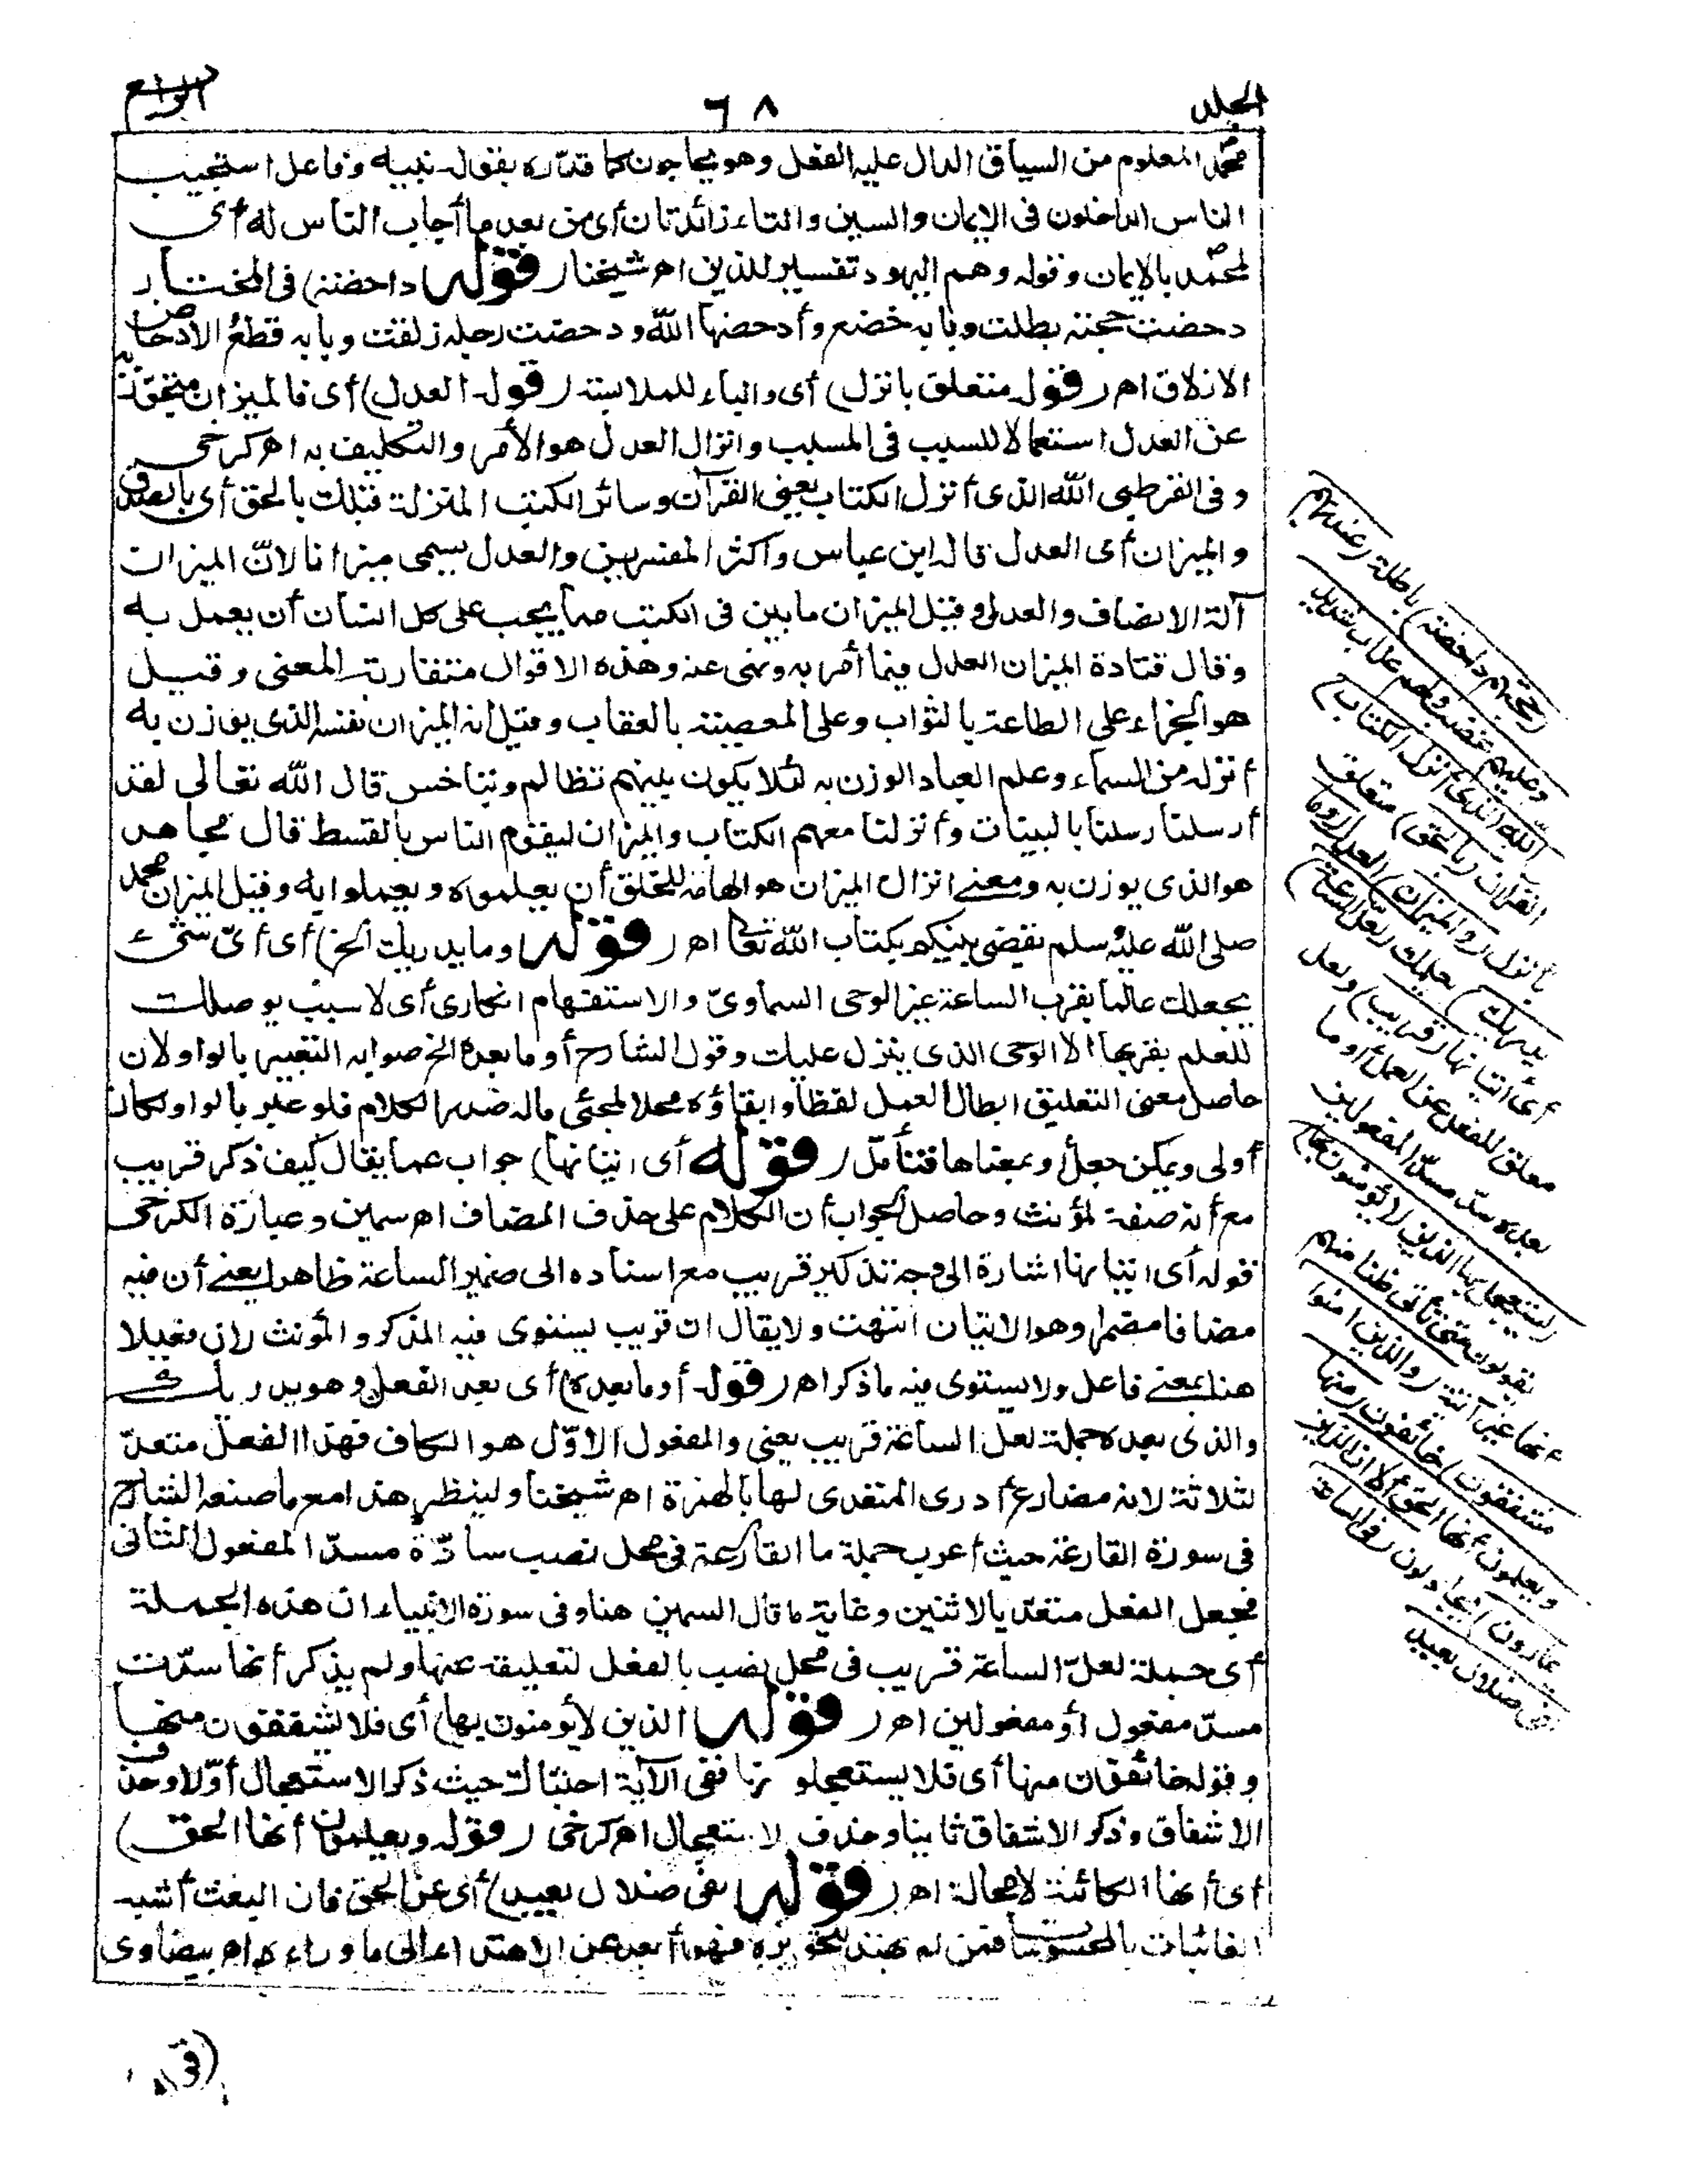 الجلد
٦٨
الرابع
محمد المعلوم من السياق الدال عليه الفعل وهو يحاجون كما قدّره بقوله نبيه وفاعل استجيب
الناس الداخلون فى الايمان والسين والتاء زائدتان أى من بعد ما أجاب الناس له أى
لمحمد بالايمان وقوله وهم اليهود تفسير للذين اهـ شيخنا (قوله داحضة) فى المختار
دحضت حجته بطلت وبابه خضع وأدحضها الله ودحضت رجله زلقت وبابه قطع الادحاض
الازلاق اهـ (قوله متعلق بانزل) أى والباء للملابسة (قوله العدل) أى فالميزان متجوّز به
عن العدل استعمالا للسبب فى المسبب وانزال العدل هو الأمر والتكليف به اهـ كرخى
وفى القرطبى الله الذى أنزل الكتاب يعنى القرآن وسائر الكتب المنزلة قبلك بالحق أى بالصدق
والميزان أى العدل قاله ابن عباس وأكثر المفسرين والعدل يسمى ميزانا لانّ الميزان
آلة الانصاف والعدل وقيل الميزان ما بين فى الكتب مما يجب على كل انسان أن يعمل به
وقال قتادة الميزان العدل فيما أمر به ونهى عنه وهذه الاقوال متقاربة المعنى وقيل
هو الجزاء على الطاعة بالثواب وعلى المعصية بالعقاب وقيل انه الميزان نفسه الذى يوزن به
أنزله من السماء وعلم العباد الوزن به لئلا يكون بينهم تظالم وتباخس قال الله تعالى لقد
أرسلنا رسلنا بالبينات وأنزلنا معهم الكتاب والميزان ليقوم الناس بالقسط قال مجاهد
هو الذى يوزن به ومعنى انزال الميزان هو الهامه للخلق أن يعلموه ويعملوا به وقيل الميزان محمد
صلى الله عليه وسلم يقضى بينكم بكتاب الله تعالى اهـ (قوله وما يدريك الخ) أى أىّ شىء
يجعلك عالما بقرب الساعة غير الوحى السماوىّ والاستفهام انكارى أى لا سبب يوصلك
للعلم بقربها الا الوحى الذى ينزل عليك وقول الشارح أو ما بعده الخ صوابه التعبير بالواو لان
حاصل معنى التعليق ابطال العمل لفظا وابقاؤه محلا لمجىء ماله صدر الكلام فلو عبر بالواو لكان
أولى ويمكن جعل أو بمعناها فتأمّل (قوله أى اتيانها) جواب عما يقال كيف ذكر قريب
مع أنه صفة لمؤنث وحاصل الجواب أن الكلام على حذف المضاف اهـ سمين وعبارة الكرخى
قوله أى اتيانها اشارة الى وجه تذكير قريب مع اسناده الى ضمير الساعة ظاهرا يعنى أن فيه
مضافا مضمرا وهو الاتيان انتهت ولا يقال ان قريب يستوى فيه المذكر والمؤنث لان فعيلا
هنا بمعنى فاعل ولا يستوى فيه ما ذكر اهـ (قوله أو ما بعده) أى بعد الفعل وهو يدريك
والذى بعده جملة لعل الساعة قريب يعنى والمفعول الاوّل هو الكاف فهذا الفعل متعدّ
لثلاثة لانه مضارع أدرى المتعدى لها بالهمزة اهـ شيخنا ولينظر هذا مع ما صنعه الشارح
فى سورة القارعة حيث أعرب جملة ما القارعة فى محل نصب سادّة مسدّ المفعول الثانى
فجعل الفعل متعدّيا لاثنين وغاية ما قال السمين هنا وفى سورة الانبياء ان هذه الجملة
أى جملة لعلّ الساعة قريب فى محل نصب بالفعل لتعليقه عنها ولم يذكر أنها سدّت
مسدّ مفعول أو مفعولين اهـ (قوله الذين لا يؤمنون بها) أى فلا يشفقون منها
وقوله خائفون منها أى فلا يستعجلونها ففى الآية احتباك حيث ذكر الاستعجال أوّلا وحذف
الاشفاق وذكر الاشفاق ثانيا وحذف الاستعجال اهـ كرخى (قوله ويعلمون أنها الحق)
أى أنها الكائنة لا محالة اهـ (قوله لفى ضلال بعيد) أى عن الحق فان البعث أشبه
الغائبات بالمحسوسات فمن لم يهتد لتجويزه فهو أبعد عن الاهتداء الى ما وراءه اهـ بيضاوى
(حجتهم داحضة) باطلة (عند ربهم
وعليهم غضب ولهم عذاب شديد
الله الذى أنزل الكتاب)
القرآن (بالحق) متعلق
بأنزل (والميزان) العدل (وما
يدريك) يعلمك (لعل الساعة)
أى اتيانها (قريب) ولعل
معلق للفعل عن العمل أو ما
بعده سدّ مسدّ المفعولين
(يستعجل بها الذين لا يؤمنون بها)
يقولون متى تأتى ظنا منهم
أنها غير آتية (والذين آمنوا
مشفقون) خائفون (منها
ويعلمون أنها الحق ألا ان الذين
يمارون) يجادلون (فى الساعة
لفى ضلال بعيد